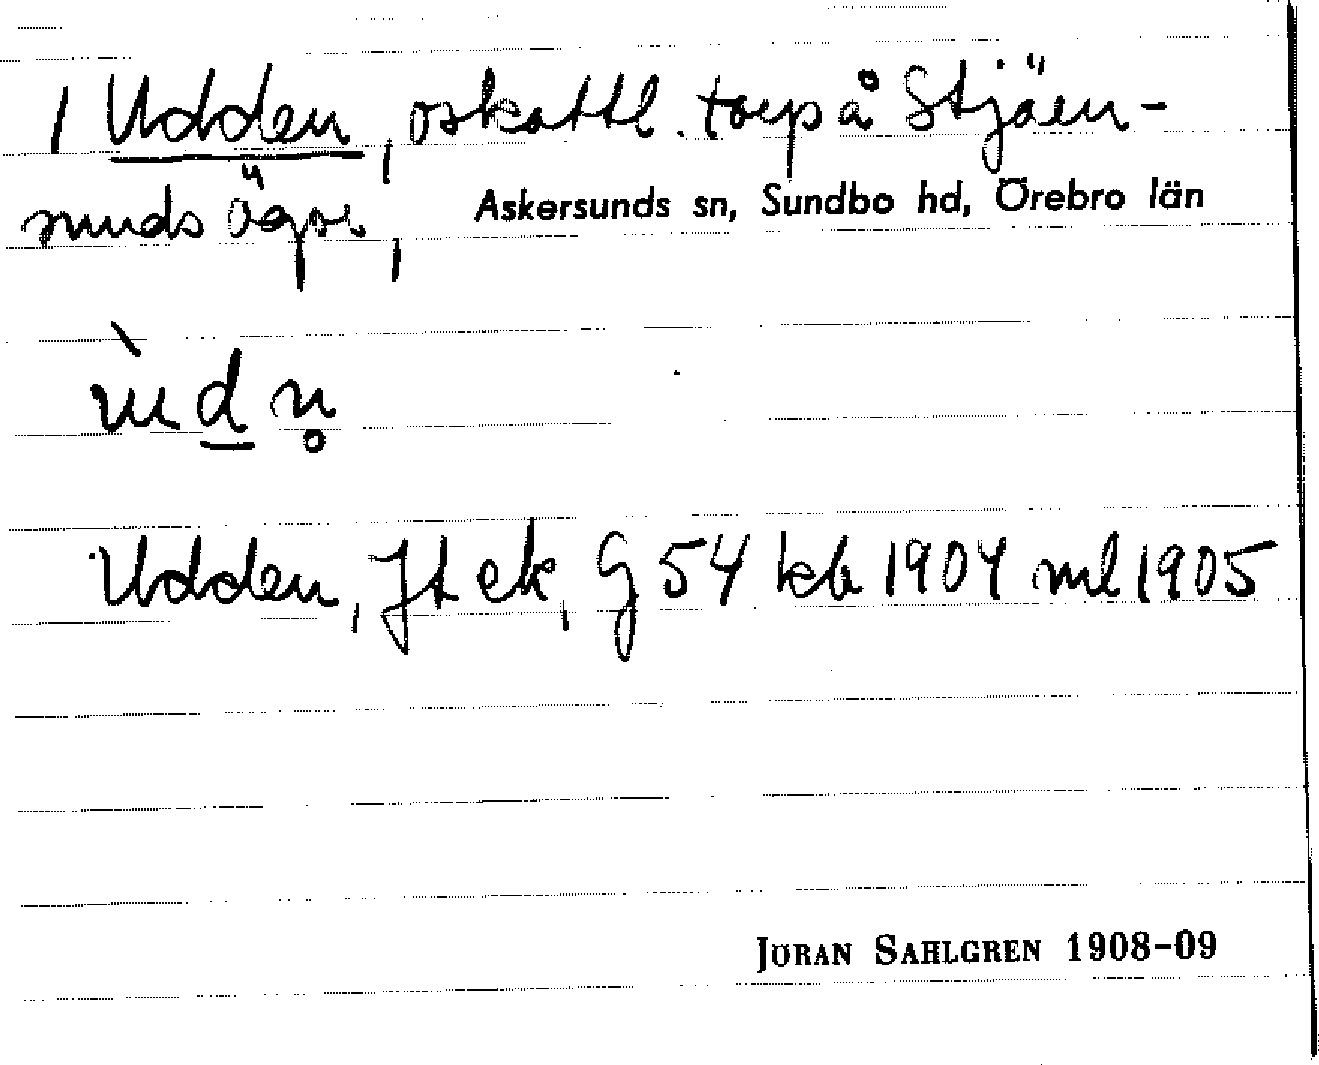 1 Udden, oskattl. torp å Stjärn-
sunds ägor,
Askersunds sn, Sundbo hd, Örebro län
Udden, Jt ek, G 54 kb 1904 ml 1905
JÖRAN SAHLGREN 1908-09